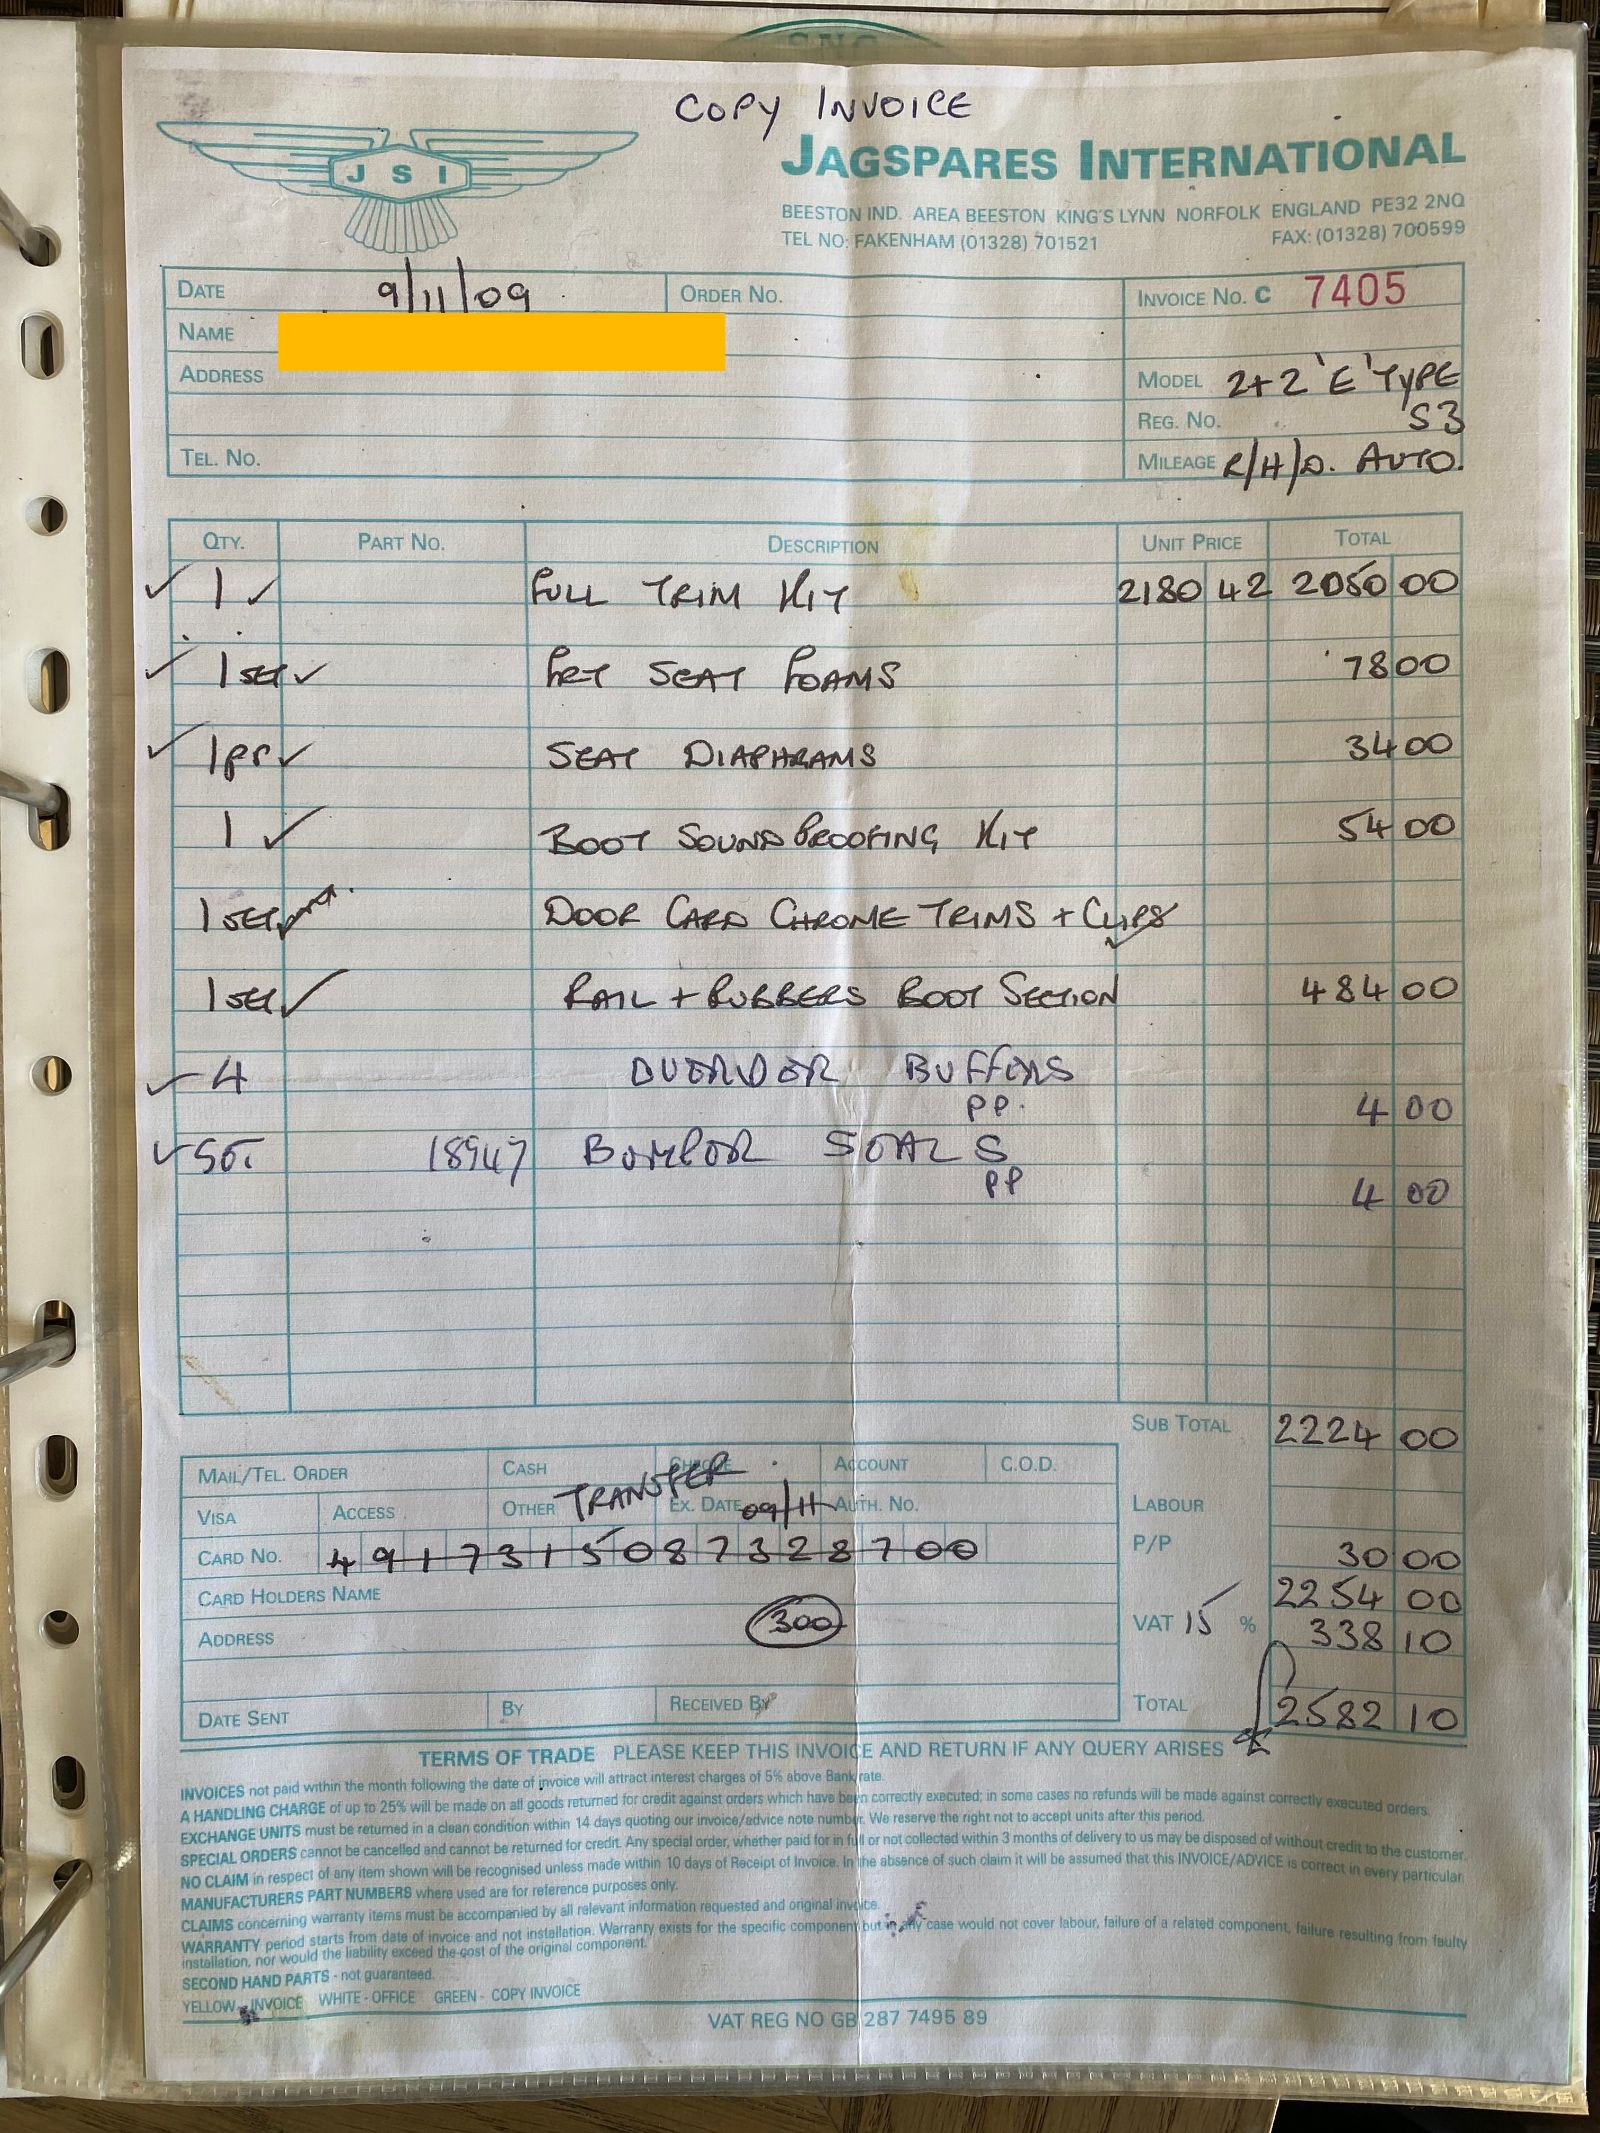 COPY INVOICE
J S I
JAGSPARES INTERNATIONAL
BEESTON IND. AREA BEESTON KING'S LYNN NORFOLK ENGLAND PE32 2NQ
TEL NO: FAKENHAM (01328) 701521 FAX: (01328) 700599
DATE 9/11/09 ORDER NO. INVOICE NO. C 7405
NAME
ADDRESS MODEL 2+2 'E' TYPE
REG. NO. S3
TEL. NO. MILEAGE R/H/D. AUTO.
QTY. PART NO. DESCRIPTION UNIT PRICE TOTAL
1 FULL TRIM KIT 2180 42 2050 00
1 SET FRT SEAT FOAMS 78 00
1 pr SEAT DIAPHRAMS 34 00
1 BOOT SOUND PROOFING KIT 54 00
1 SET DOOR CARD CHROME TRIMS + CLIPS
1 SET RAIL + RUBBERS BOOT SECTION 484 00
4 OVERIDER BUFFERS
PP. 4 00
SET. 18947 BUMPER SEALS
PP 4 00
SUB TOTAL 2224 00
MAIL/TEL. ORDER CASH CHEQUE ACCOUNT C.O.D.
VISA ACCESS OTHER TRANSFER EX. DATE 09/11 AUTH. NO. LABOUR
CARD NO. 4917315087328700 P/P 30 00
CARD HOLDERS NAME 2254 00
ADDRESS 300 VAT 15 % 338 10
DATE SENT BY RECEIVED BY TOTAL 2582 10
TERMS OF TRADE PLEASE KEEP THIS INVOICE AND RETURN IF ANY QUERY ARISES
INVOICES not paid within the month following the date of invoice will attract interest charges of 5% above Bank rate.
A HANDLING CHARGE of up to 25% will be made on all goods returned for credit against orders which have been correctly executed; in some cases no refunds will be made against correctly executed orders.
EXCHANGE UNITS must be returned in a clean condition within 14 days quoting our invoice/advice note number. We reserve the right not to accept units after this period.
SPECIAL ORDERS cannot be cancelled and cannot be returned for credit. Any special order, whether paid for in full or not collected within 3 months of delivery to us may be disposed of without credit to the customer.
NO CLAIM in respect of any item shown will be recognised unless made within 10 days of Receipt of Invoice. In the absence of such claim it will be assumed that this INVOICE/ADVICE is correct in every particular.
MANUFACTURERS PART NUMBERS where used are for reference purposes only.
CLAIMS concerning warranty items must be accompanied by all relevant information requested and original invoice.
WARRANTY period starts from date of invoice and not installation. Warranty exists for the specific component but in any case would not cover labour, failure of a related component, failure resulting from faulty
installation, nor would the liability exceed the cost of the original component.
SECOND HAND PARTS - not guaranteed.
YELLOW - INVOICE WHITE - OFFICE GREEN - COPY INVOICE
VAT REG NO GB 287 7495 89